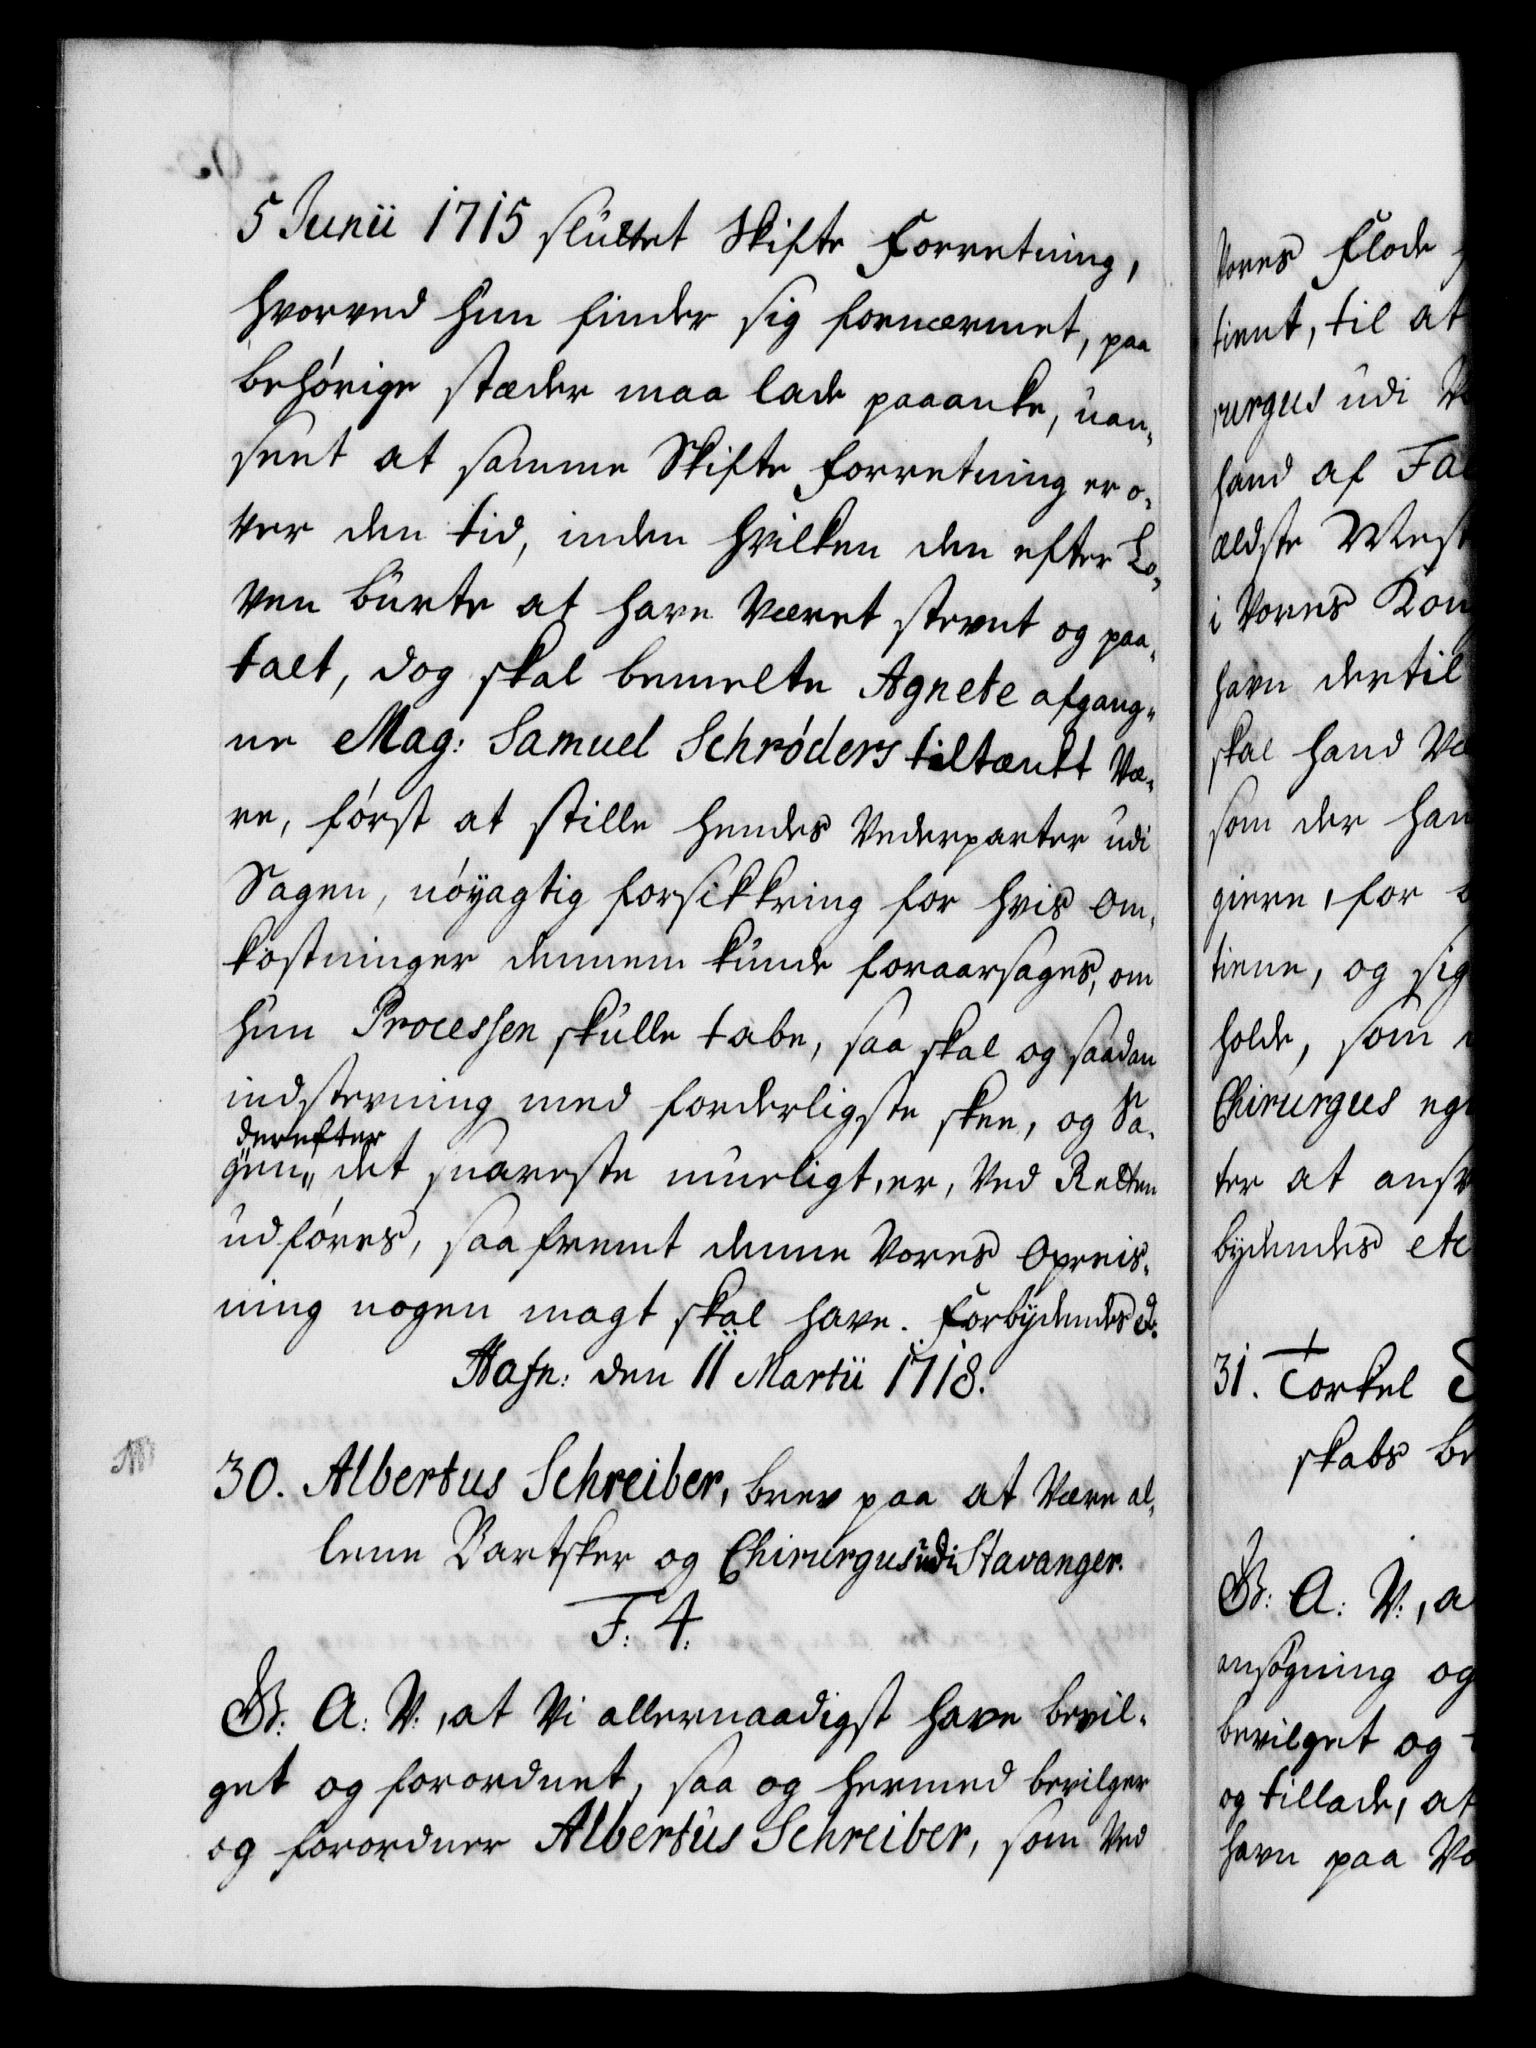 5 Junii 1715 sluttet Skifte Forretning,
hvorved hun finder sig fornærmet, paa
behørige stæder maa lade paaanke, uan,
seet at samme Skifte Forretning er o,
ver den tid, inden hvilken den efter Lo,
ven burte at have Været stevnt og paa,
talt, dog skal bemelte Agnete afgang,
ne Mag: Samuel Schrøders tiltænkt Væ,
re, først at stille hendes Vederparter udi
Sagen, nøyagtig forsikkring for hvis Om,
kostninger dennem kunde foraarsages, om
hun Processen skulle tabe, saa skal og saadan
indstevning med forderligste skee, og Sa,
derefter
gen,, det snareste mueligt, er, Ved Retten
udføres, saafremt denne Vores Opreis,
ning nogen magt skal have. Forbydendes &.
Hafn: den 11 Martii 1718.
30. Albertus Schreiber, brev paa at Være al,
lene Bartsker og Chirurgus udi Stavanger.
F: 4.
G: A: V:, at Vi allernaadigst have bevil,
get og forordnet, saa og hermed bevilger
og forordner Albertus Schreiber, som Ved
Vores Flode
tient, til at
rurgus udi
hand af
ældste
i Vores
havn dertil
skal hand
som der
giere, for
tiene, og sig
holde, som
Chirurgus
ter at
bydendes etc
31. Torkel
skabs
G: A: V:, a
ansøgning og
bevilget og
og tillade, at
havn paa